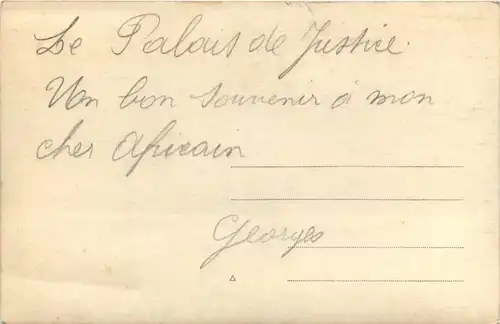 Le Palais de Justice.
Un bon souvenir à mon
cher Africain
Georges